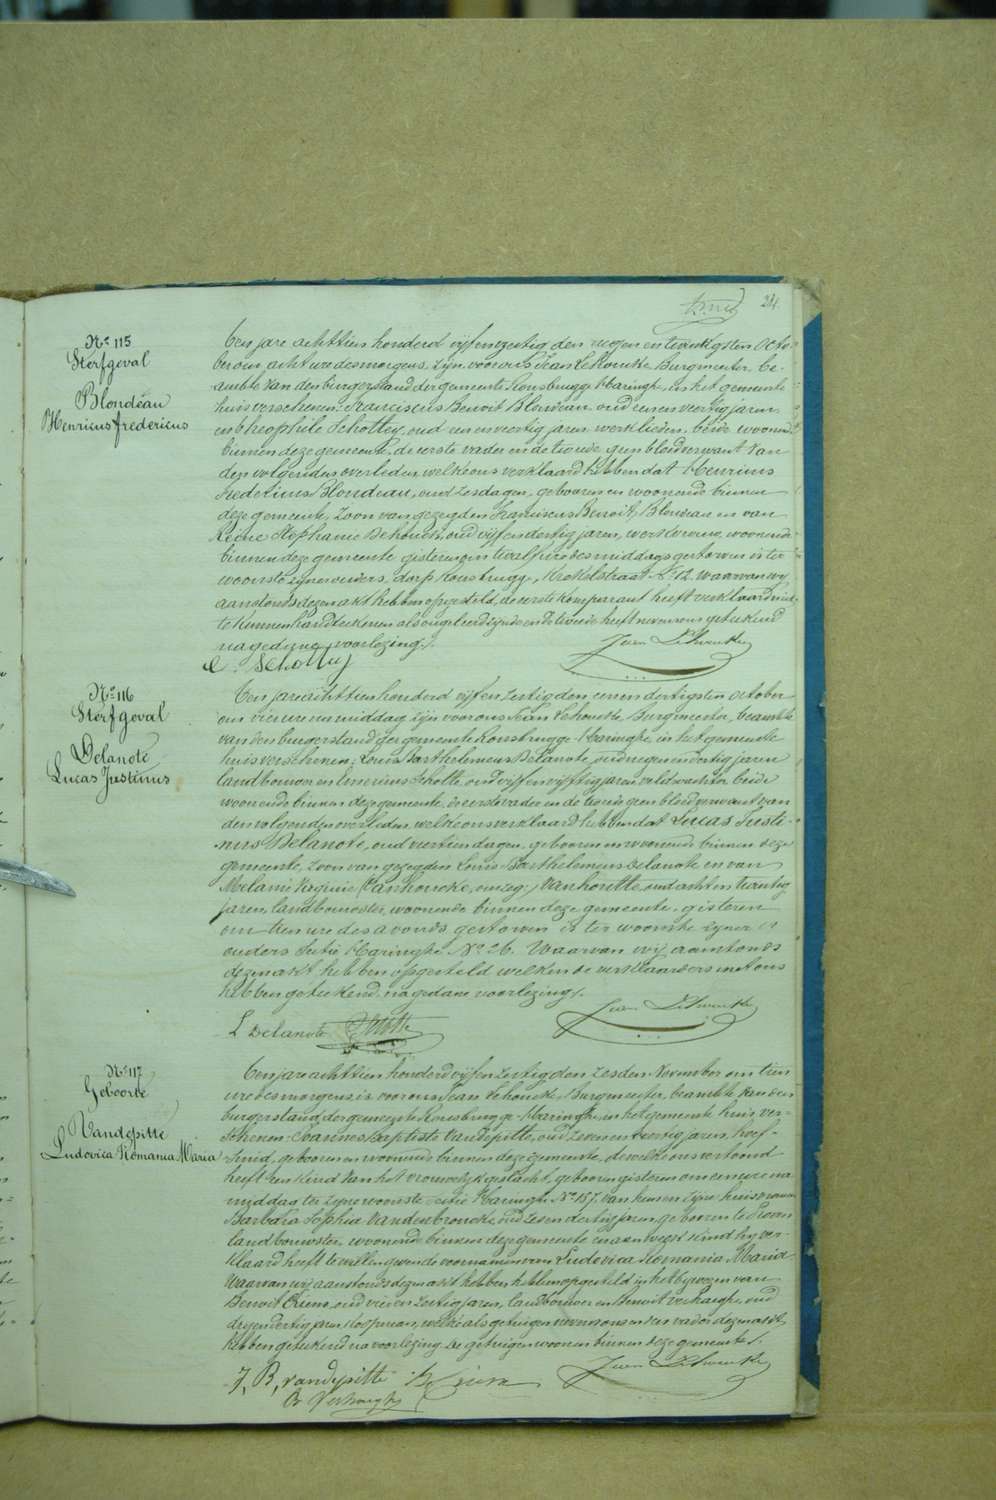 24.
No 115
Sterfgeval
Blondeau
Henricus fredericus
Ten jare achttien honderd vijfenzestig den negen en twintigsten Octo-
ber om acht ure des morgens, zijn voor ons Jean Burgmeester, be-
ambte van den burgerstand der gemeente Rousbrugge Haringhe, in het gemeente
huis verschenen: Franciscus Benoit Blondeau oud een en veertig jaren
en Theophile Schottey, oud een en veertig jaren werklieden, beide woonende
binnen deze gemeente, de eerste vader en de tweede geen bloedverwant van
den volgenden overleden, welke ons verklaard hebben dat Henricus
Fredericus Blondeau, oud zes dagen, geboren en woonende binnen
deze gemeente, zoon van gezegden Franciscus Benoit Blondeau en van
Reine Stephanie Dehouck, oud vijf en dertig jaren, werkvrouw, woonende
binnen deze gemeente gisteren om twalf ure des middags gestorven is ter
woonste zijner ouders, dorp Rousbrugge, straat No 12. waarvan wij
aanstonds dezen akt hebben opgesteld, de eerste komparant heeft verklaard niet
te kunnen handteekenen als ongeleerd zijnde en de tweede heeft nevens ons geteekend
na gedane voorlezing.
C. Schottey
No 116
Sterfgeval
Delanote
Lucas Justinus
Ten jare achttien honderd vijf en zestig den een en dertigsten october
om vier ure namiddag zijn voor ons Jean Burgmeester, beambte
van den burgerstand der gemeente Rousbrugge Haringhe, in het gemeente
huis verschenen; Louis Barthelemeus Delanote, oud negen en dertig jaren
landbouwer en Scholte, oud vijf en vijftig jaren veldwachter beide
woonende binnen deze gemeente, de eerste vader en de tweede geen bloedverwant van
den volgenden overleden, welke ons verklaard hebben dat Lucas Justi-
nus Delanote, oud veertien dagen, geboren en woonende binnen deze
gemeente, zoon van gezegden Louis Barthelemeus Delanote en van
Melanie Vanhoucke, en zeg: Vanhoutte oud acht en twintig
jaren, landbouwster, woonende binnen deze gemeente, gisteren
om tien ure des avonds gestorven is ter woonste zijner
ouders Sectie Haringhe No 26. Waarvan wij aanstonds
dezen akt hebben opgesteld welken de verklaarders met ons
hebben geteekend, na gedane voorlezing.
L Delanote
No 117
Geboorte
Vandepitte
Ludovica Romania Maria
Ten jare achttien honderd vijf en zestig den zesden November om tien
ure des morgens is voor ons Jean Burgmeester, beambte van den
burgerstand der gemeente Rousbrugge-Haringhe, in het gemeente huis, ver-
schenen Joannes Baptiste Vandepitte, oud zeven en veertig jaren, hoef-
smid, geboren en woonende binnen deze gemeente, dewelke ons vertoond
heeft een kind van het vrouwelijk geslacht, geboren gisteren om een ure na
middag ter zijne woonste Sectie Haringhe No 157. van hem en zijne huisvrouw
Barbara Sophia Vandenbroucke, oud zes en dertig jaren, geboren te Proven
landbouwster, woonende binnen deze gemeente en aan welk kind hij ver-
klaard heeft te willen geven de voornamen van Ludovica Romania Maria
Waarvan wij aanstonds dezen akt hebben hebben opgesteld in het bijwezen van
Benoit oud vier en zestig jaren, landbouwer en Benoit Verhaeghe, oud
dry en dertig jaren koopman, welke als getuigen nevens ons en den vader dezen akt
hebben geteekend na voorlezing. De getuigen woonen binnen deze gemeente.
J, B, vandepitte
B Verhaeghe